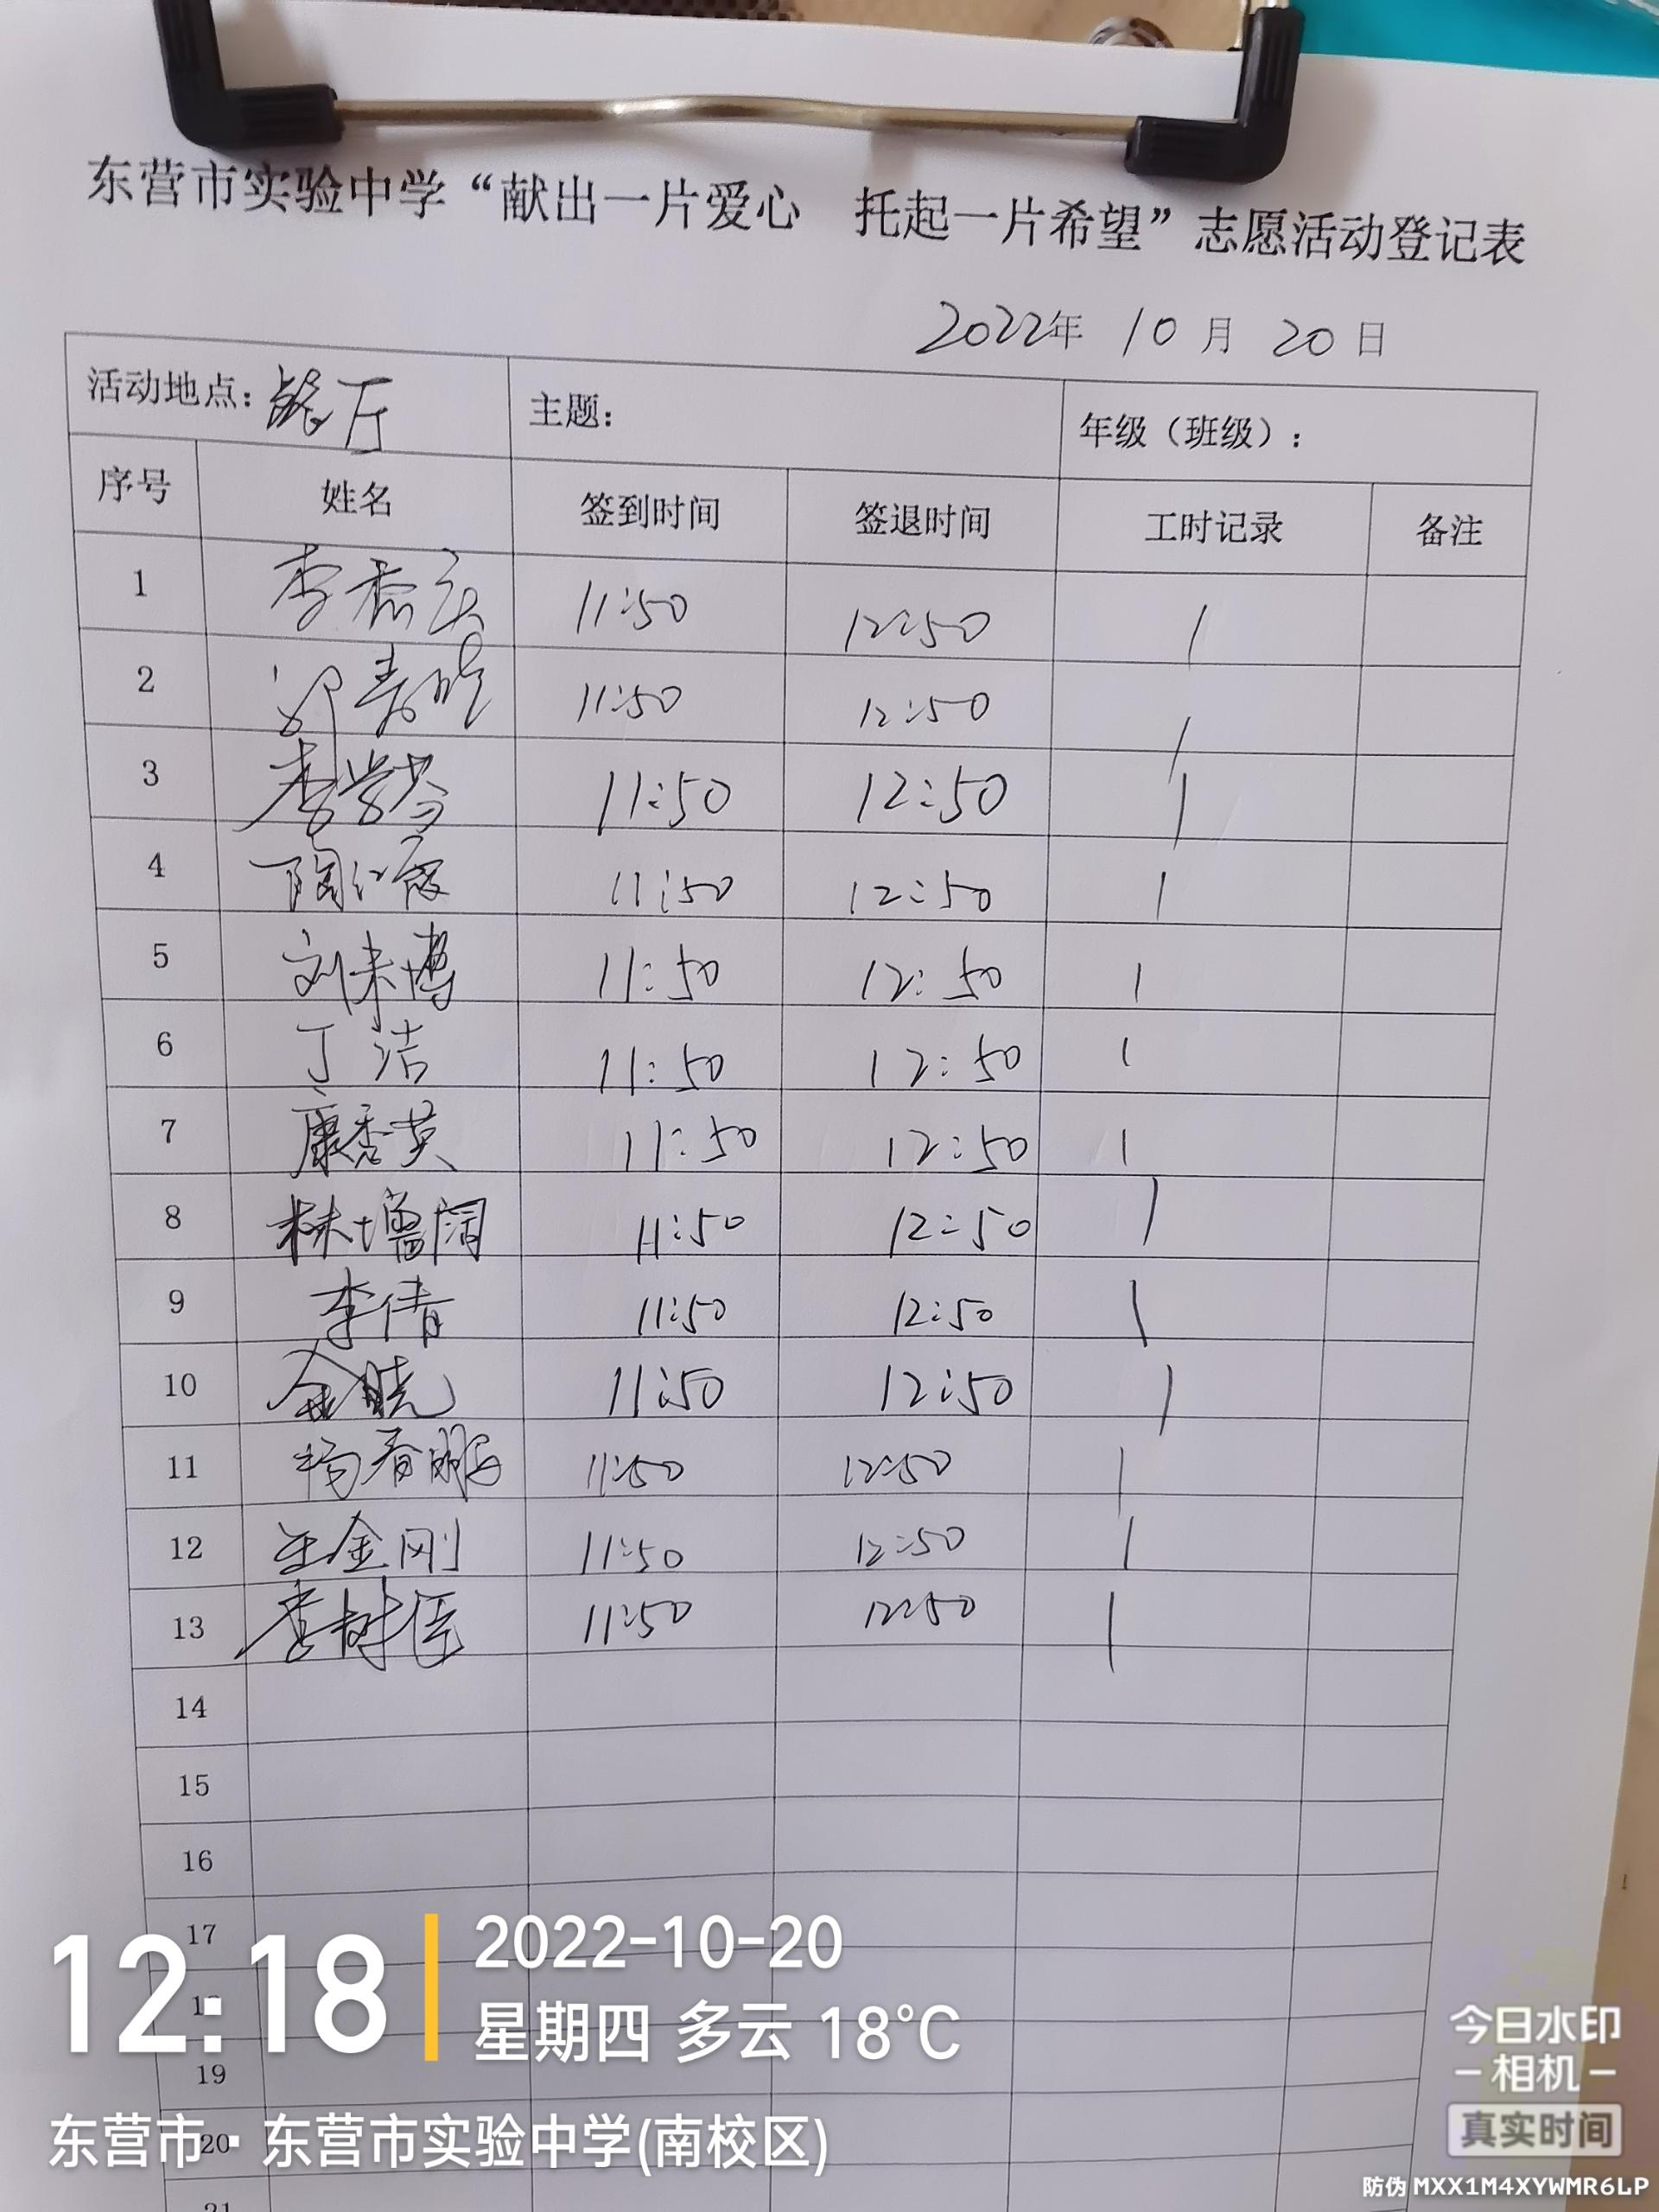 东营市实验中学“献出一片爱心 托起一片希望”志愿活动登记表
2022年 10月 20日
活动地点：餐厅 主题： 年级（班级）：
序号 姓名 签到时间 签退时间 工时记录 备注
1 李 11:50 12:50 1
2 11:50 12:50 1
3 李 11:50 12:50 1
4 陶红霞 11:50 12:50 1
5 刘来博 11:50 12:50 1
6 丁洁 11:50 12:50 1
7 康秀英 11:50 12:50 1
8 林增阔 11:50 12:50 1
9 李倩 11:50 12:50 1
10 晓 11:50 12:50 1
11 杨春鹏 11:50 12:50 1
12 王金刚 11:50 12:50 1
13 李树 11:50 12:50 1
14
15
16
17
19
20
21
12:18
2022-10-20
星期四 多云 18°C
东营市·东营市实验中学(南校区)
今日水印
-相机-
真实时间
防伪 MXX1M4XYWMR6LP